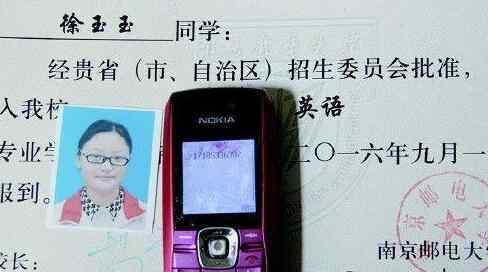 徐玉玉 同学：
经贵省（市、自治区）招生委员会批准，
入我校 英语
专业学 二〇一六年九月一
报到。
NOKIA
京邮电大
南京邮电大
校长：